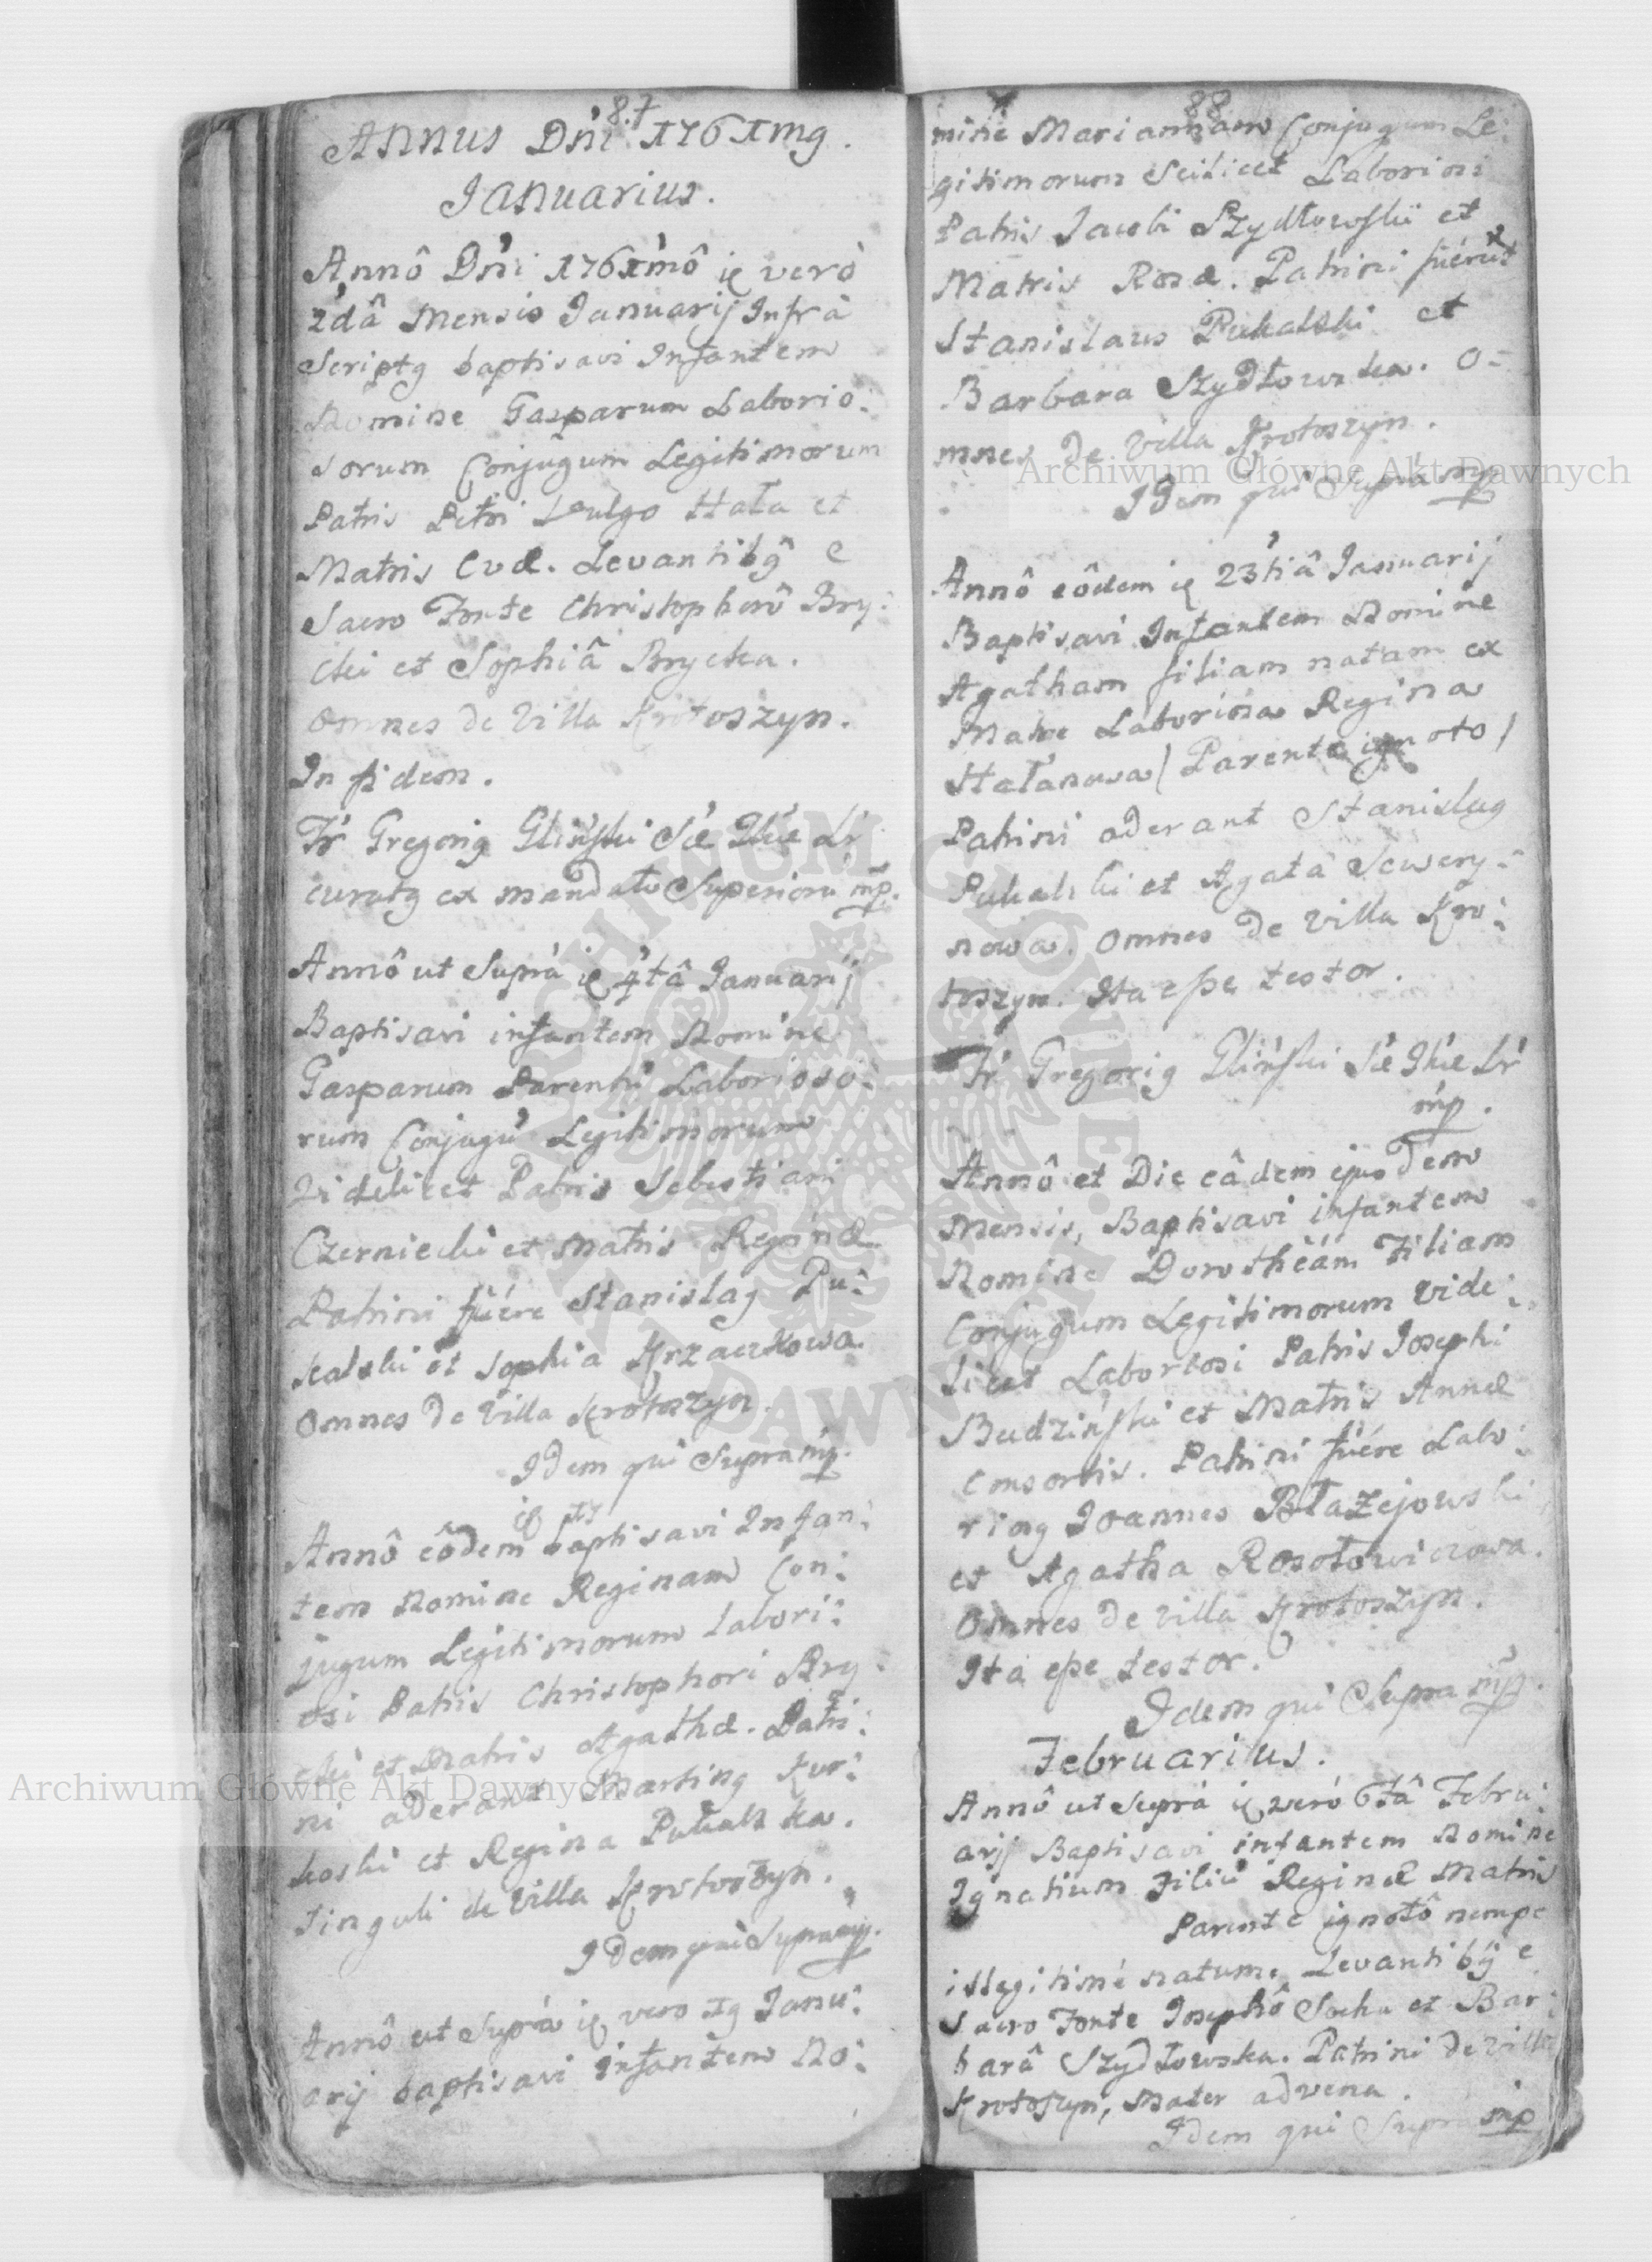 87
Annus Dńi 1761mg.
Januarius.
Annô Dńi 1761mô ię verò
2dâ Mensis Januarij Infrà
Scriptg baptisavi Infantem
Nomine Gasparum Laborio:
sorum Conjugum Legitimorum
Patris Petri Vulgo Hała et
Matris Evæ. Levantibg̃ e
Sacro Fonte Christophorô Bry:
cki et Sophiâ Brycka.
Omnes de Villa Krotoszyn.
In fidem.
Fr Gregorig Gliński
curatg ex mandato Superioru mp.
Annô ut Suprà ię 4tâ Januarij
Baptisavi infantem Nomine
Gasparum Parentú Laborioso:
rum Conjugú Legitimorum
Videlicet Patris Sebestiani
Czerniecki et Matris Reginæ
Patrini fuére Stanislag Pu:
kalski et Sophia Krzaczkowa.
Omnes de Villa Krotoszyn.
Idem qui Supra mp.
ię 17
Annô eôdem baptisavi Infan:
tem Nomine Reginam Con:
jugum Legitimorum Labori:
osi Patris Christophori Bry:
cki et Matris Agathæ. Patri:
ni aderant Marting Kur:
koski et Regina Pukalska.
Singuli de Villa Krotoszyn.
Idem qui Supra mp.
Annô ut Suprà ię vero 19 Janu:
arij baptisavi Infantem No:
88
mine Mariannam Conjugum Le:
gitimorum Scilicet Laboriosi
Patris Jacobi Szydłowski et
Matris Rosæ. Patrini fuérút
Stanislaus Pukalski et
Barbara Szydłowska. O:
mnes de Villa Krotoszyn.
Idem qui Suprà mp
Annô eôdem ię 23tiâ Januarij
Baptisavi Infantem Nomine
Agatham filiam natam ex
Matre Laboriosa Regina
Hałanowa / Parente ignoto /
Patrini aderant Stanislag
Pukalski et Agata Sewery:
nowa. Omnes de Villa Kro:
toszyn. Ita eſse testor.
Fr Gregorig Gliński
mp.
Annô et Die eâdem ejusdem
Mensis, Baptisavi infantem
Nomine Dorothéam Filiam
Conjugum Legitimorum Vide:
licet Laboriosi Patris Josephi
Budziński et Matris Annæ
Consortis. Patrini fuére Labo:
riosg Joannes Błażejowski
et Agatha Rosołowiczowa.
Omnes de Villa Krotoszyn.
Ita eſse testor.
Idem qui Supra mp.
Februarius.
Annô ut Suprà ię veró 6tâ Febru:
arij Baptisavi infantem Nomine
Ignatium Filiú Reginæ Matris
Parente ignotô nempe
illegitimé natum. Levantibg e
Sacro Fonte Josephô Socha et Bar:
barâ Szydłowska. Patrini de Villa
Krotoszyn, Mater advena.
Idem qui Supra mp
Archiwum Główne Akt Dawnych
Archiwum Główne Akt Dawnych
ARCHIWUM GŁÓWNE AKT DAWNYCH